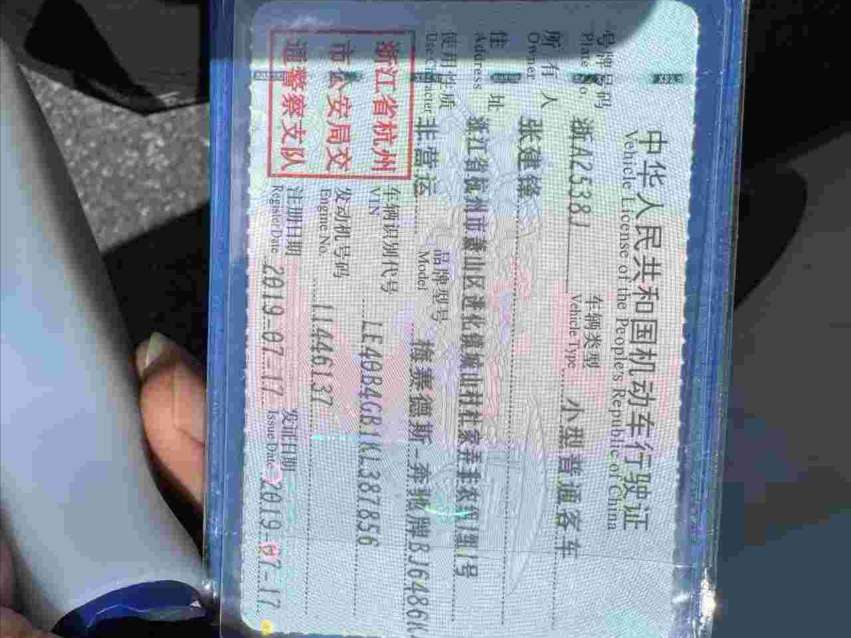 中华人民共和国机动车行驶证
Vehicle License of the People's Republic of China
号牌号码 浙A2538J 车辆类型 小型普通客车
Plate No. Vehicle Type
所有人 张建锋
Owner
住址 浙江省杭州市萧山区进化镇城山村杜家弄非农保1组1号
Address
使用性质 非营运 品牌型号 梅赛德斯-奔驰牌BJ6486K
Use Character Model
浙江省杭州
市公安局交
通警察支队
车辆识别代号 LE40B4GB1KL387856
VIN
发动机号码 11446137
Engine No.
注册日期 2019-07-17 发证日期 2019-07-17
Register Date Issue Date